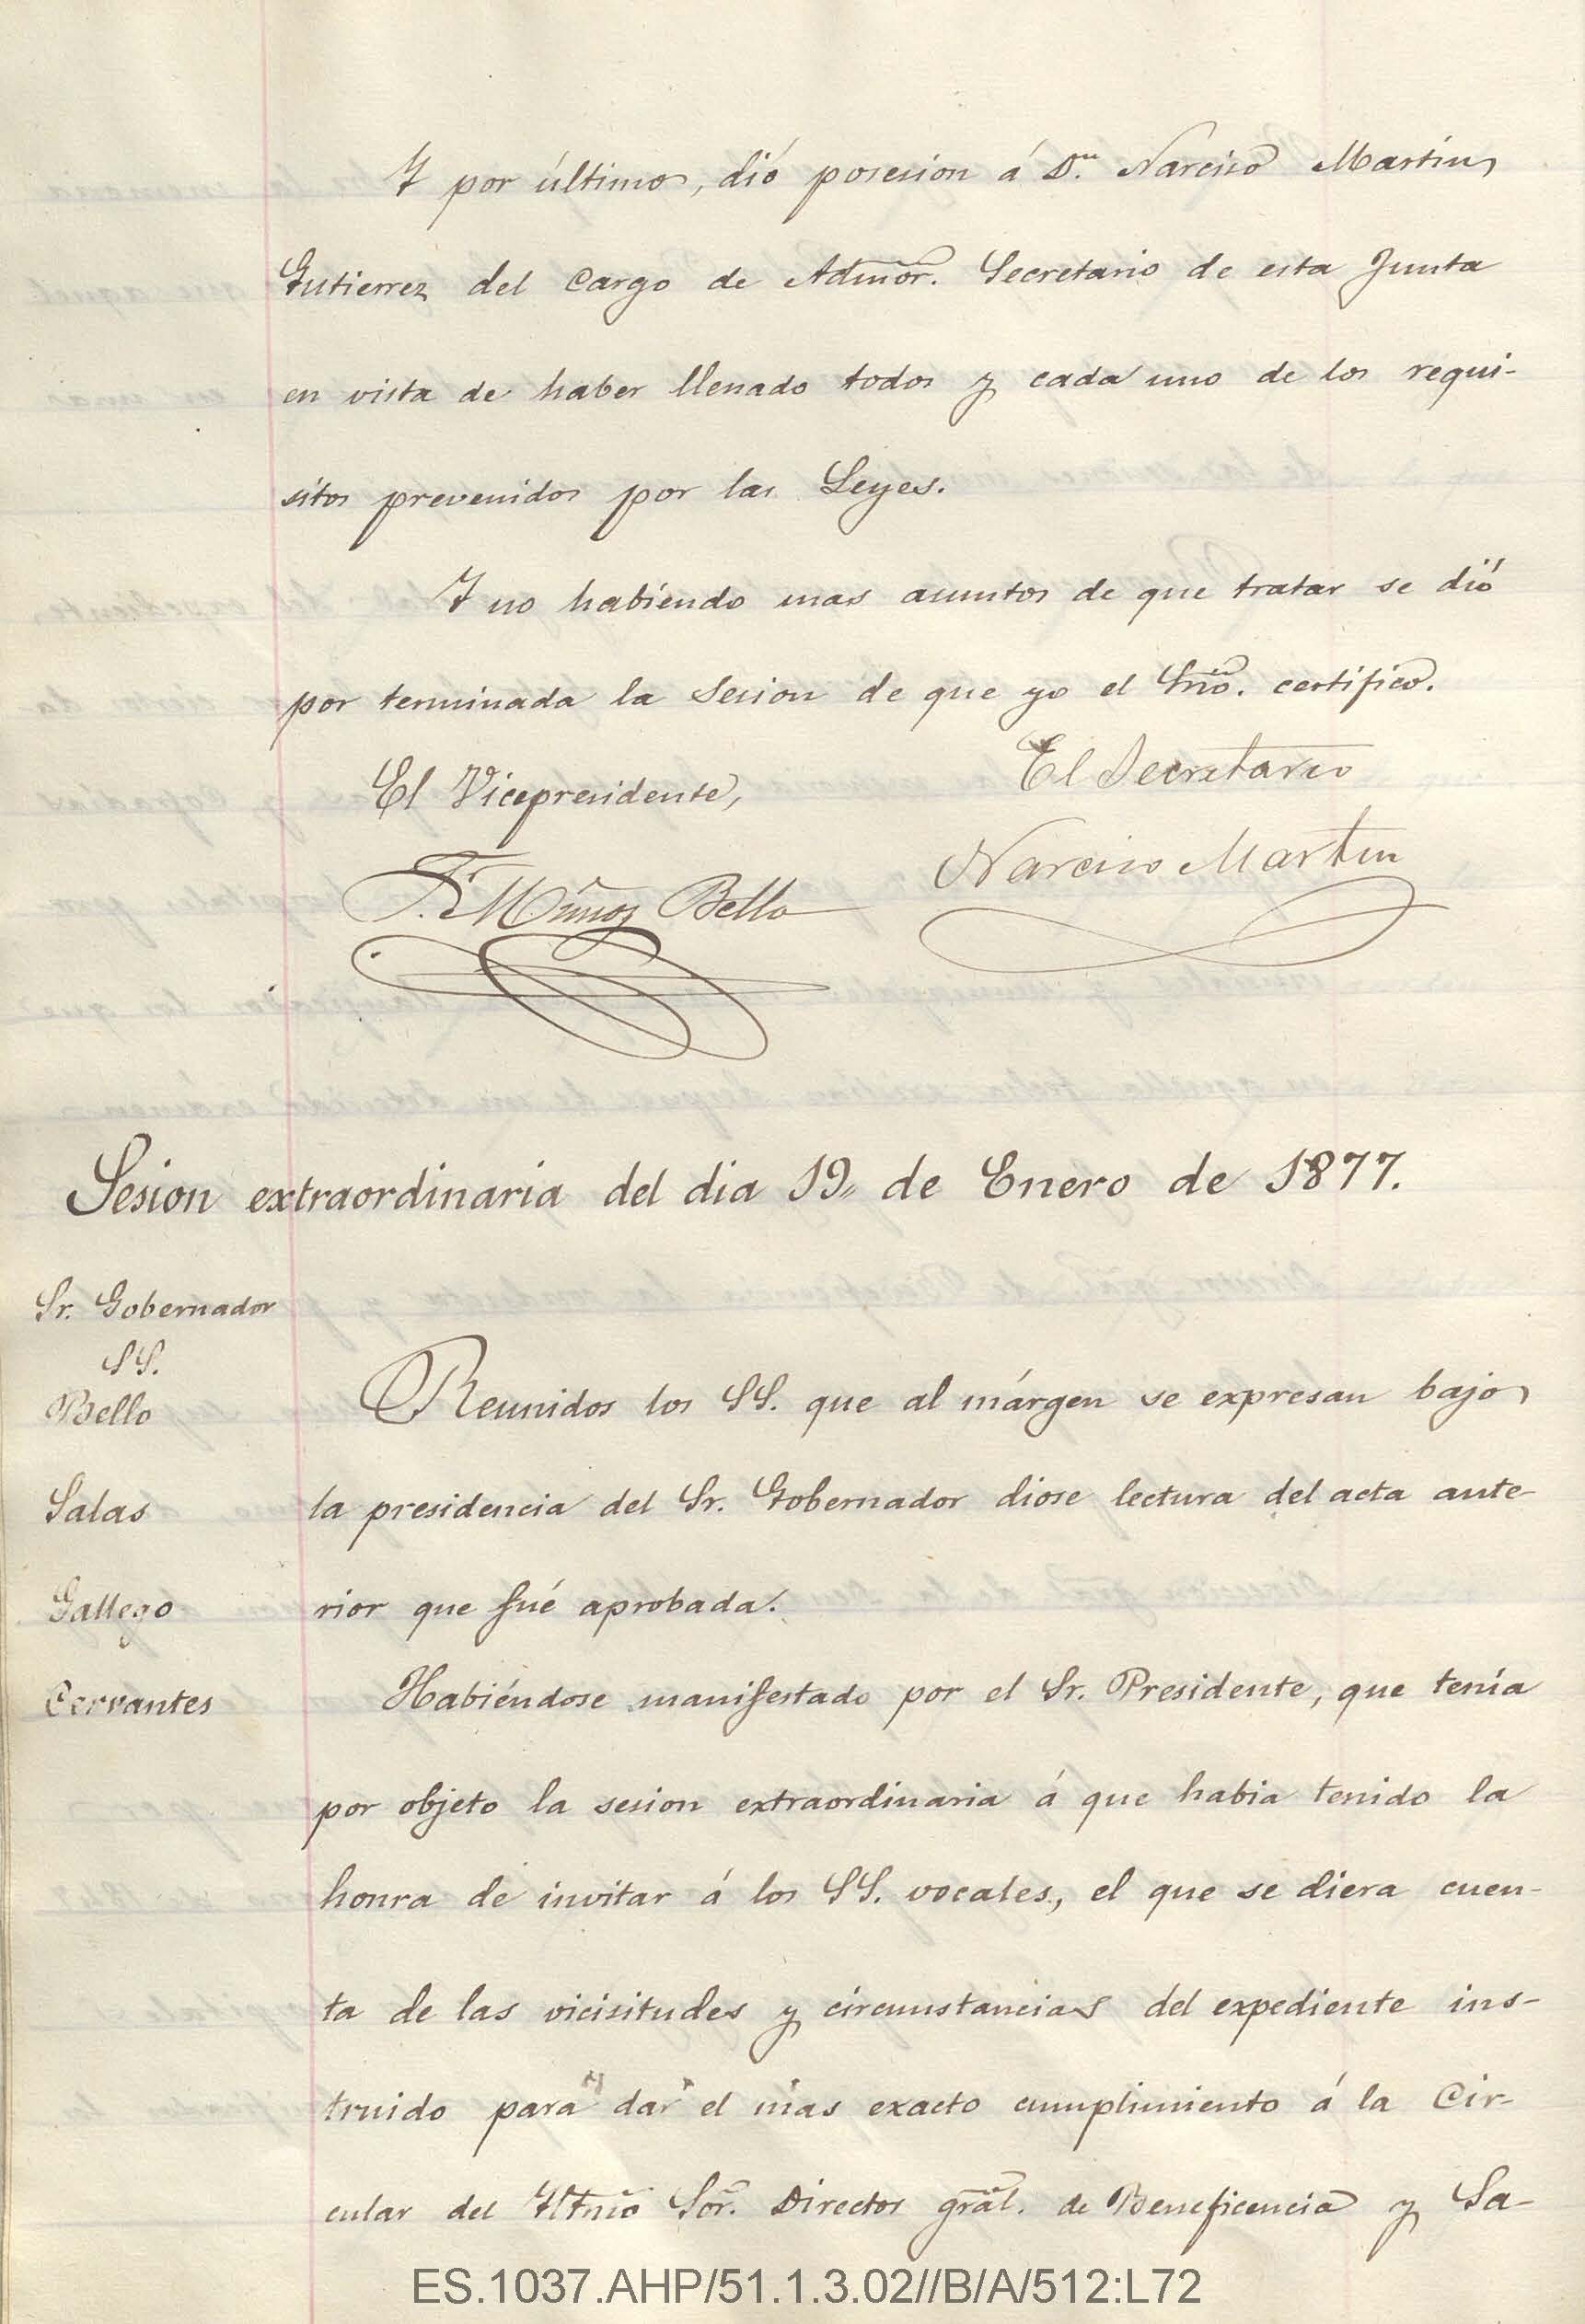 Y por último, dió posesion á Dn. Narciso Martin
Gutierrez del Cargo de Admor. Secretario de esta Junta
en vista de haber llenado todos y cada uno de los requi-
sitos prevenidos por las Leyes.
Y no habiendo mas asuntos de que tratar se dió
por terminada la Sesion de que yo el Srio. certifico.
El Vicepresidente,
El Secretario
T. Muñoz Bello
Narciso Martin
Sesion extraordinaria del dia 19 de Enero de 1877.
Sr. Gobernador
SS.
Bello
Salas
Gallego
Cervantes
Reunidos los SS. que al márgen se expresan bajo
la presidencia del Sr. Gobernador diose lectura del acta ante-
rior que fué aprobada.
Habiéndose manifestado por el Sr. Presidente, que tenía
por objeto la sesion extraordinaria á que habia tenido la
honra de invitar á los SS. vocales, el que se diera cuen-
ta de las vicisitudes y circunstancias del expediente ins-
truido para dar el mas exacto cumplimiento á la Cir-
cular del Iltmo Sor. Director gral. de Beneficencia y Sa-
ES.1037.AHP/51.1.3.02//B/A/512:L72